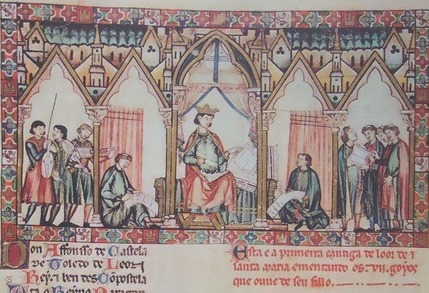 Don Affonsso de Castela
De Toledo de Leon
Rey e ben des Conpostela
Ta o Reyno
Esta e a primeira cantiga de loor de
santa maria ementando os .vij. goyos
que ouue de seu fillo.